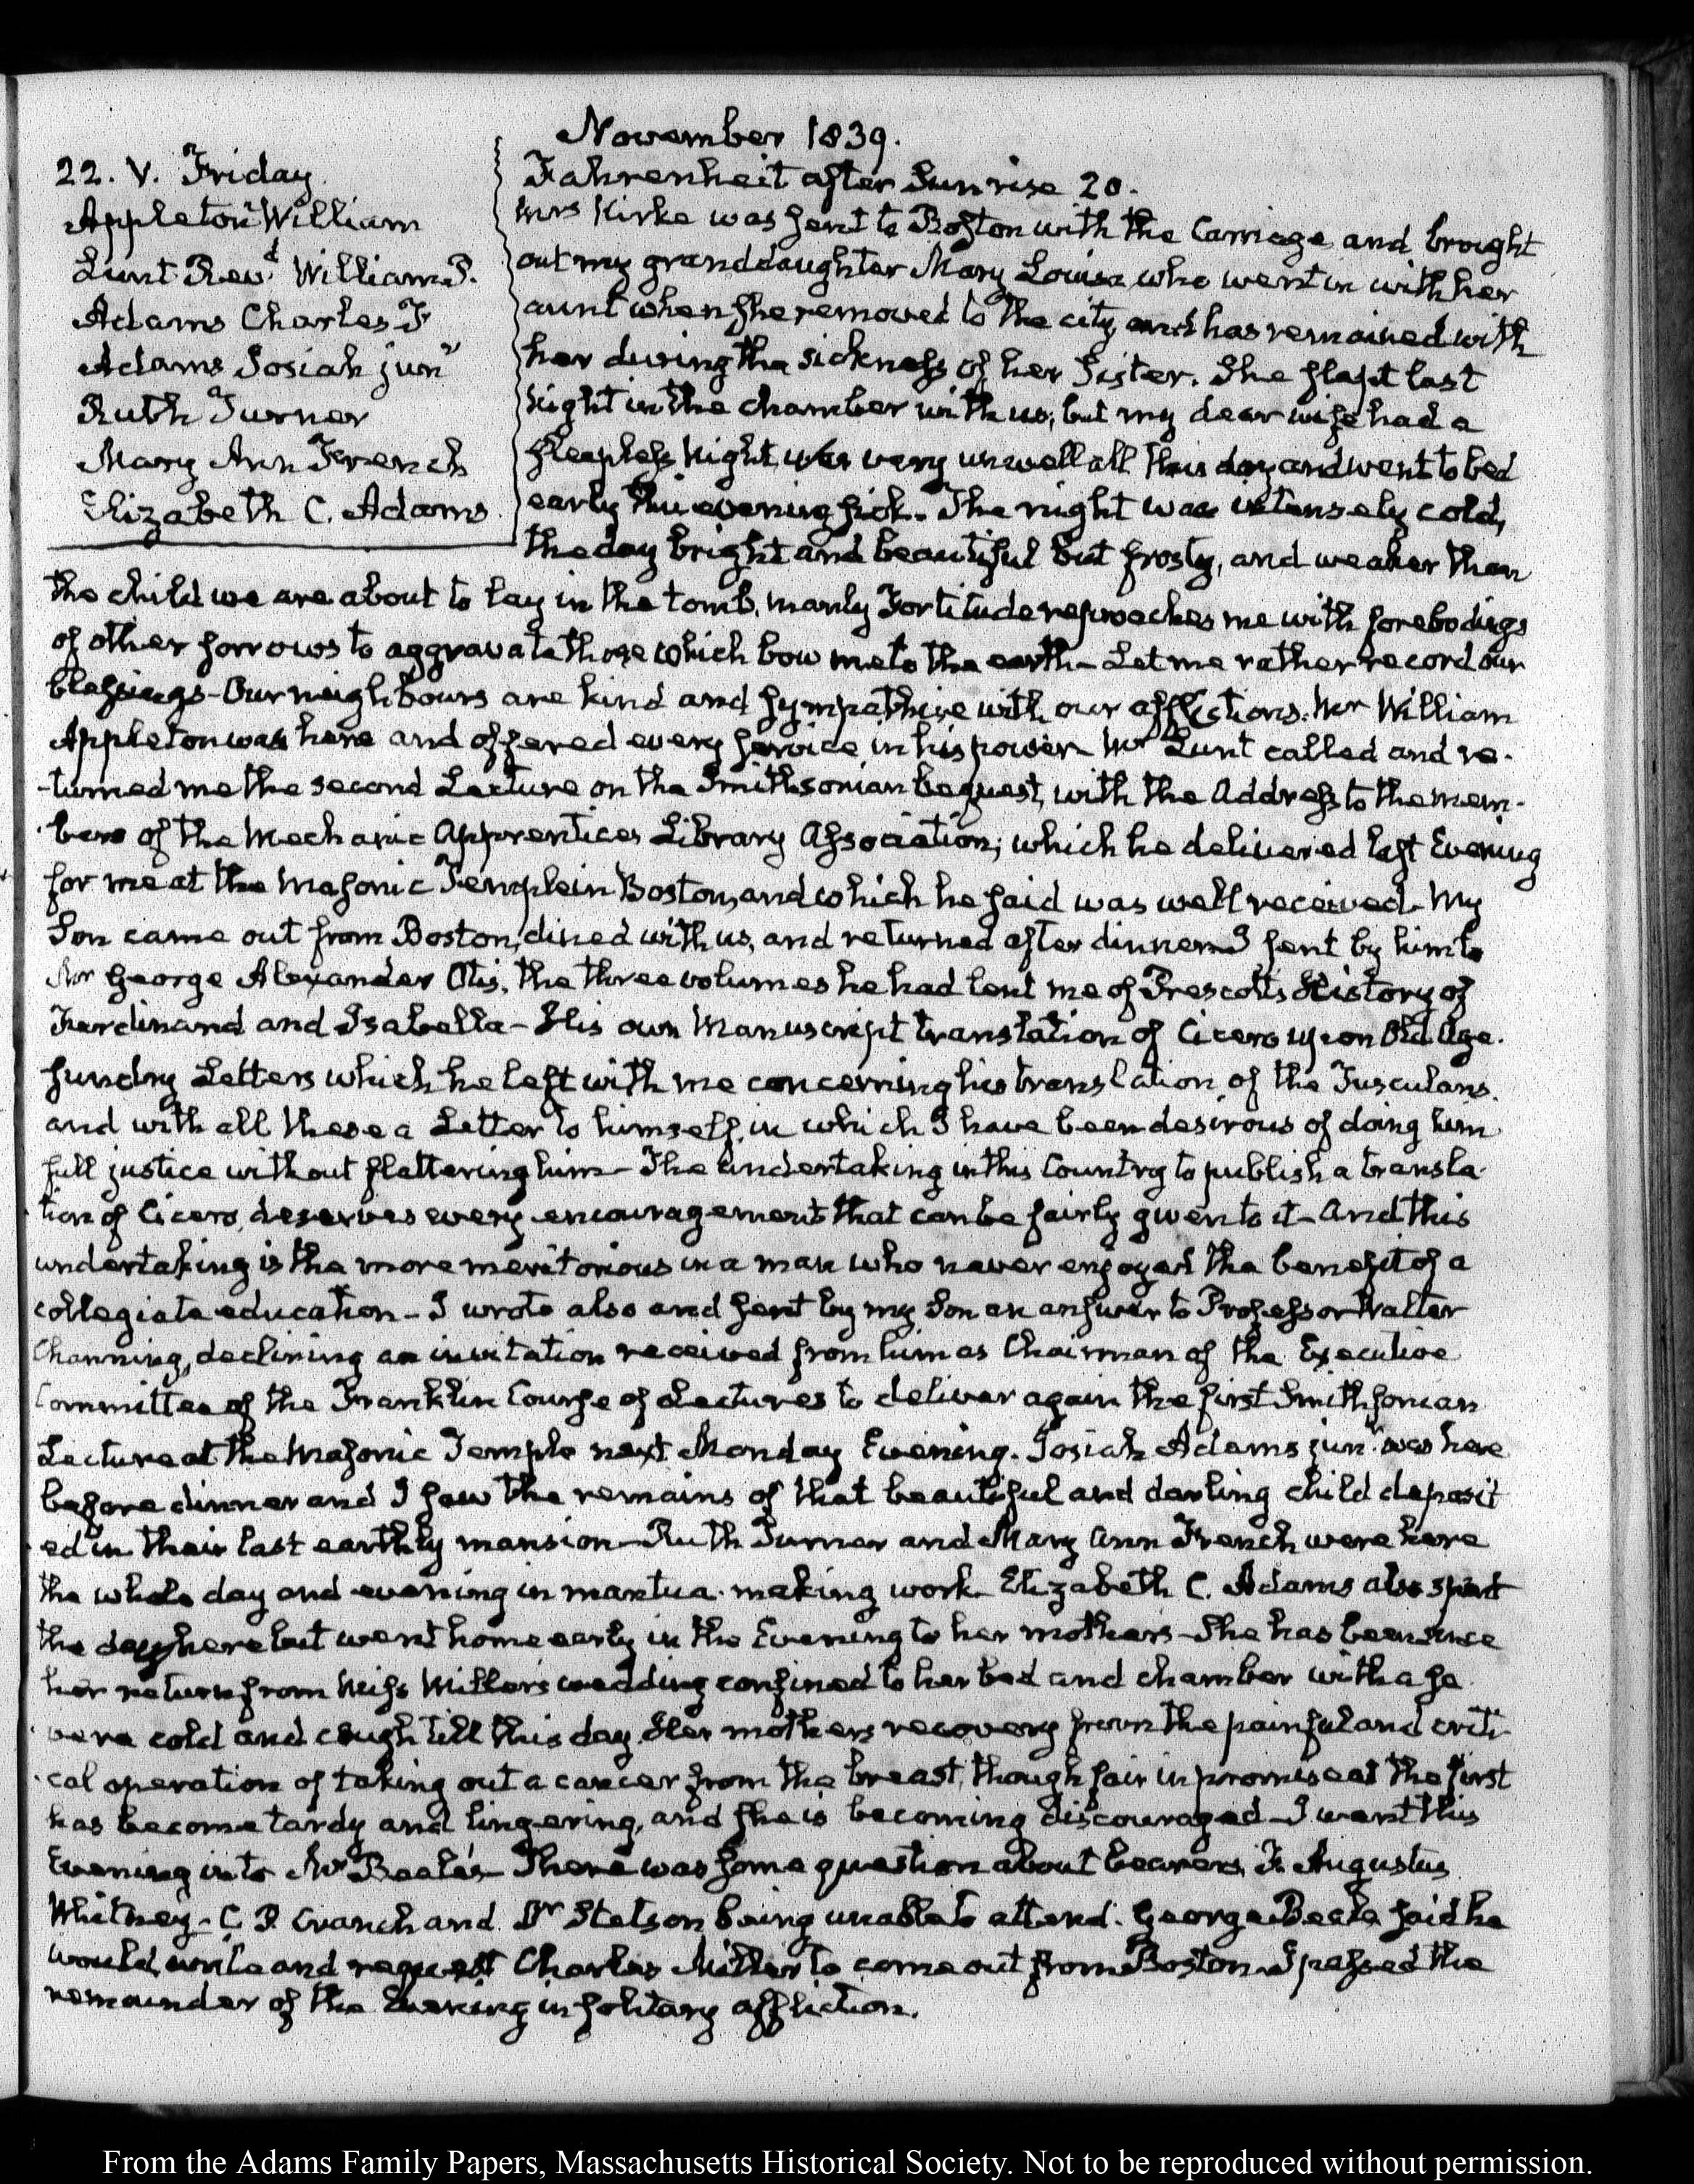 November 1839.
22. V. Friday
Appleton William
Lunt Revd. William P.
Adams Charles F
Adams Josiah junr
Ruth Turner
Mary Ann French
Elizabeth C. Adams
Fahrenheit after Sunrise 20.
Mrs Kirke was sent to Boston with the Carriage and brought
out my granddaughter Mary Louisa who went in with her
aunt when she removed to the city and has remained with
her during the sickness of her Sister. She slept last
Night in the chamber with us, but my dear wife had a
sleepless Night, was very unwell all this day and went to bed
early this evening sick. The night was intensely cold,
the day bright and beautiful but frosty, and weaker than
the child we are about to lay in the tomb, manly Fortitude reproaches me with forebodings
of other sorrows to aggravate those which bow me to the earth - Let me rather record our
blessings - Our neighbours are kind and sympathise with our afflictions. Mr William
Appleton was here and offered every service in his power Mr Lunt called and re-
-turned me the second Lecture on the Smithsonian bequest, with the Address to the mem-
-bers of the Mechanic Apprentices Library Association; which he delivered last Evening
for me at the Masonic Temple in Boston, and which he said was well received. My
Son came out from Boston, dined with us, and returned after dinner. I sent by him to
Mr George Alexander Otis, the three volumes he had lent me of Prescott's History of
Ferdinand and Isabella - His own Manuscript translation of Cicero upon Old Age.
sundry Letters which he left with me concerning his translation of the Tusculans.
and with all these a Letter to himself, in which I have been desirous of doing him
full justice without flattering him - The undertaking in this Country to publish a transla-
tion of Cicero, deserves every encouragement that can be fairly given to it - And this
undertaking is the more meritorious in a man who never enjoyed the benefit of a
collegiate education - I wrote also and sent by my Son an answer to Professor Walter
Channing, declining an invitation received from him as Chairman of the Executive
Committee of the Franklin Course of Lectures to deliver again the first Smithsonian
Lecture at the Masonic Temple next Monday Evening. Josiah Adams junr was here
before dinner and I saw the remains of that beautiful and darling child deposit
ed in their last earthly mansion - Ruth Turner and Mary Ann French were here
the whole day and evening in mantua-making work Elizabeth C. Adams also spent
the day here but went home early in the Evening to her mother's - She has been since
her return from Miss Miller's wedding confined to her bed and chamber with a se
vere cold and cough till this day. Her mother's recovery from the painful and criti-
-cal operation of taking out a cancer from the breast, though fair in promise at the first
has become tardy and lingering, and she is becoming discouraged - I went this
Evening into Mr Beale's There was some question about bearers, F. Augustus
Whitney - C. P. Cranch and Dr Stetson being unable to attend. George Beale said he
would write and request Charles Miller to come out from Boston. I passed the
remainder of the Evening in solitary affliction.
From the Adams Family Papers, Massachusetts Historical Society. Not to be reproduced without permission.